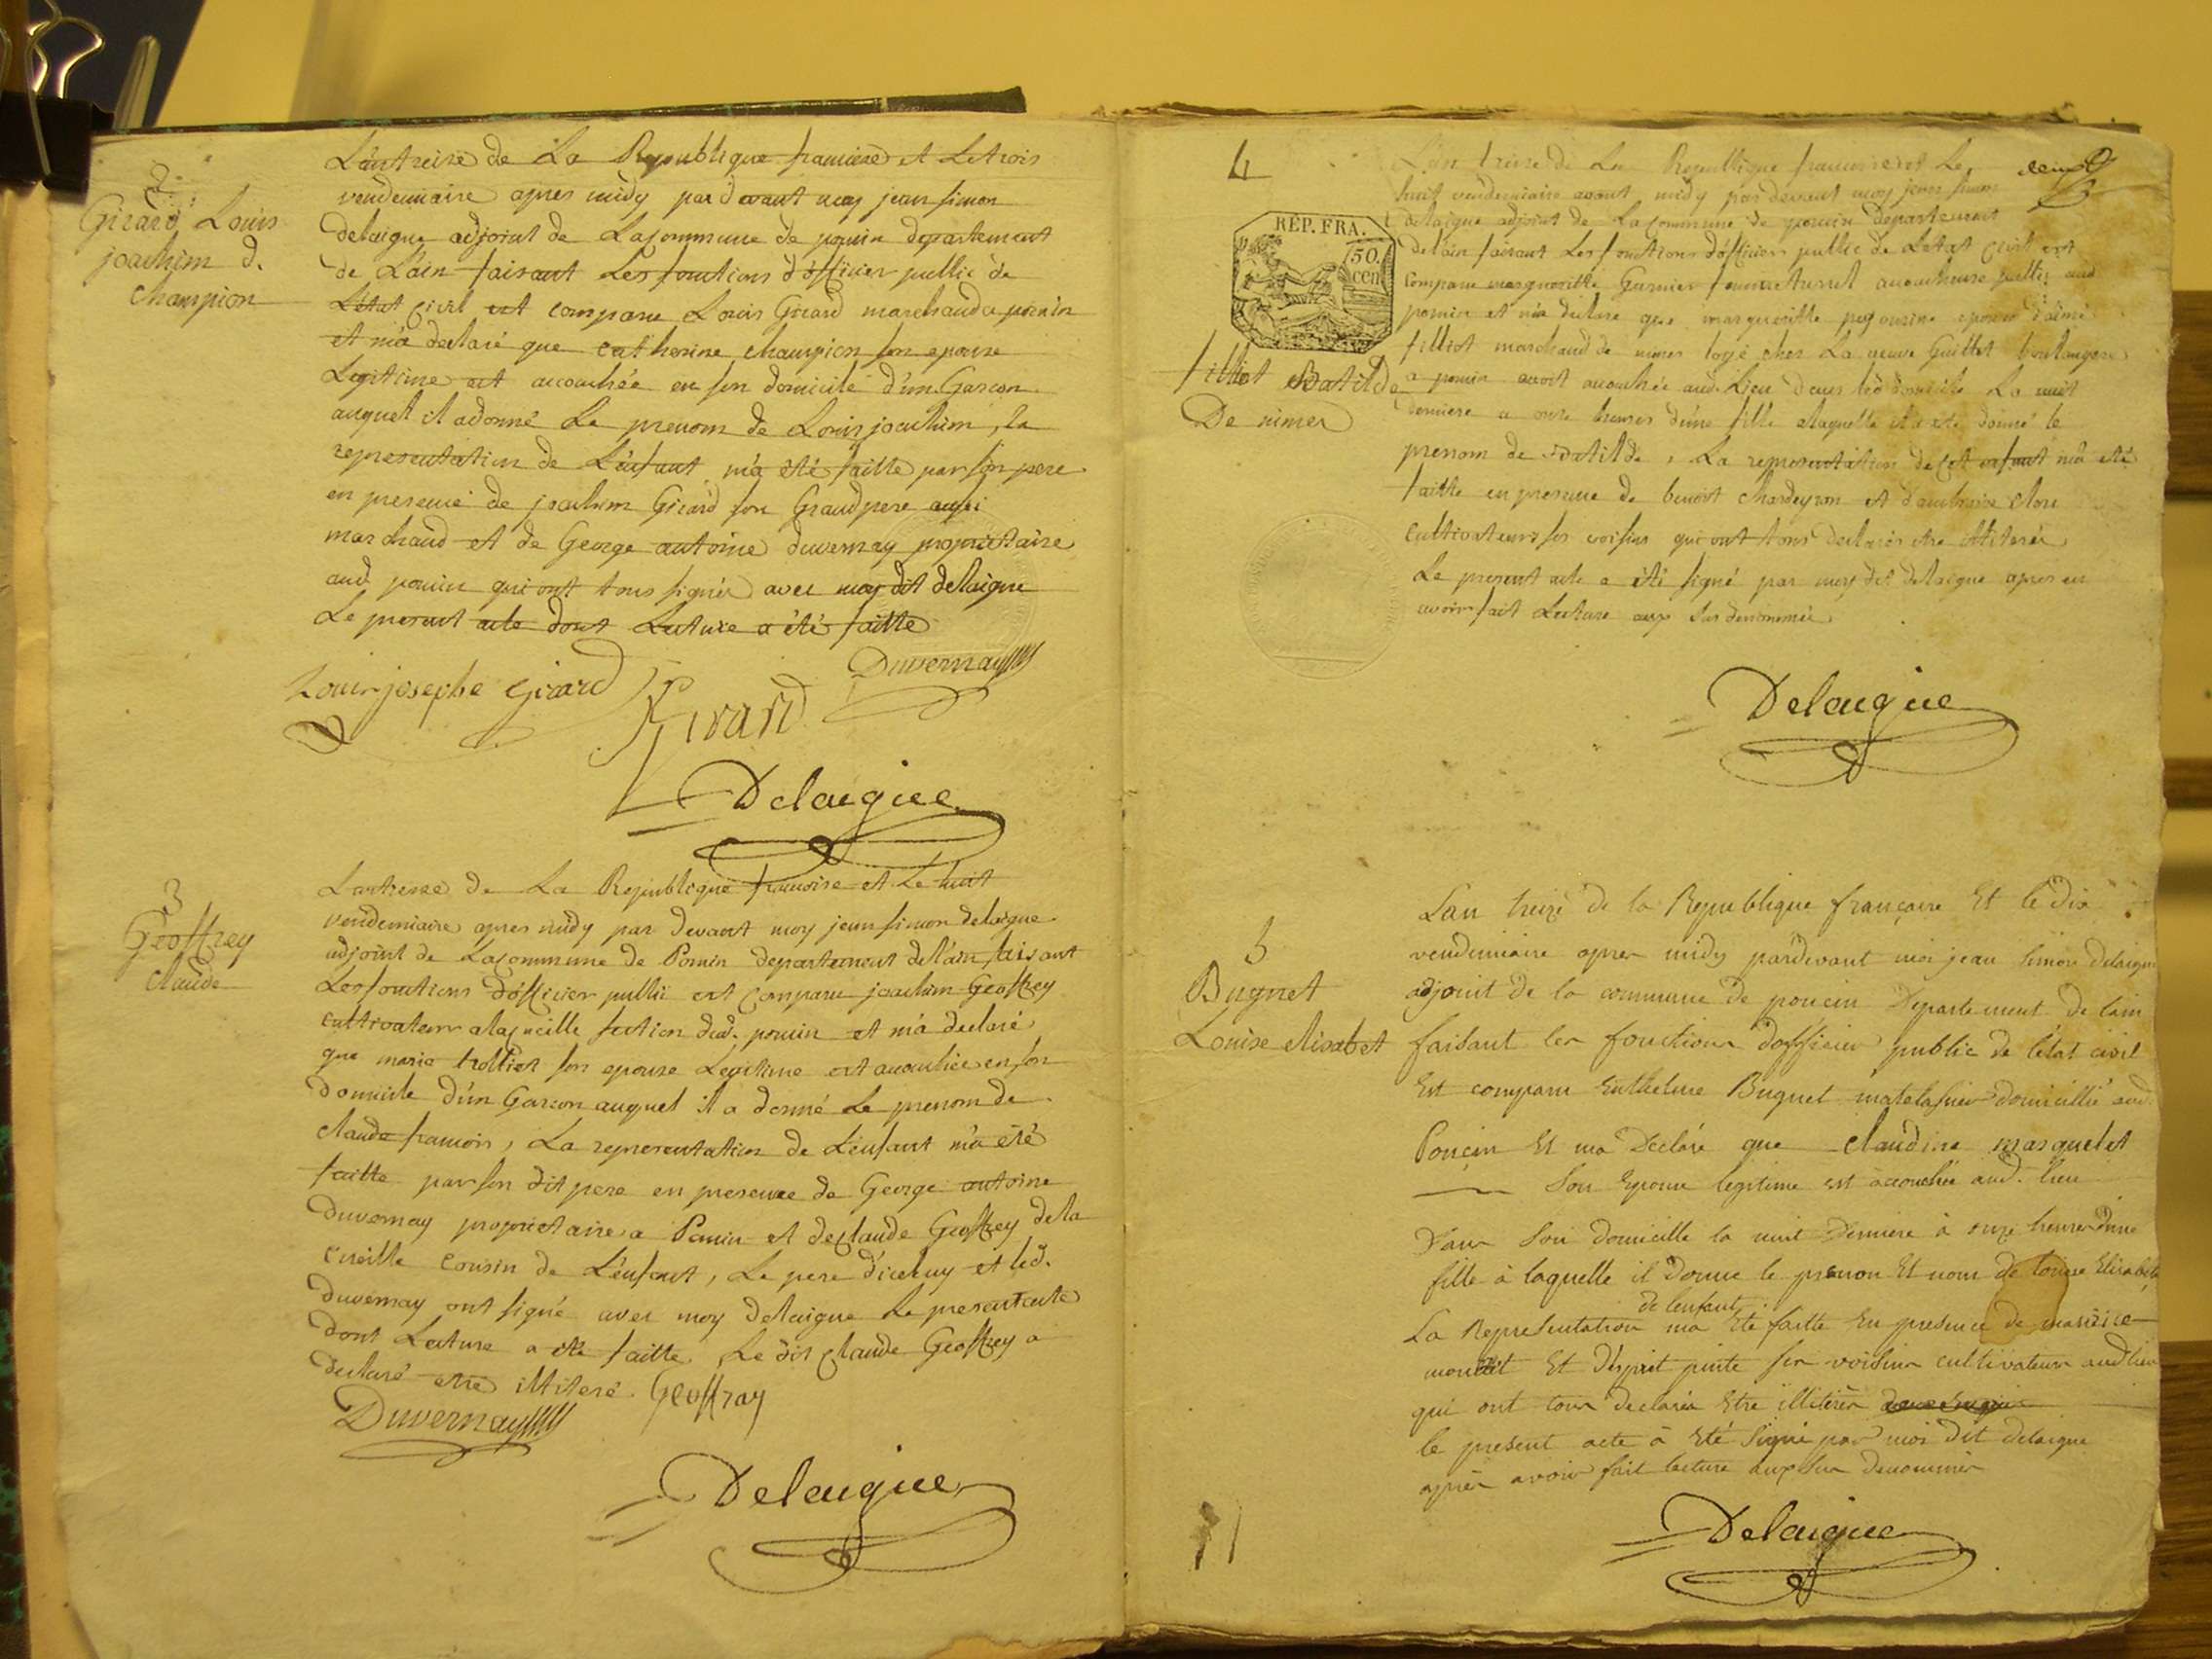 2
Girard Louis
joachim d.
champion
L'an treize de La Republique francoise et Le trois
vendemiaire apres midy par devant moy jean simon
delaigue adjoint de La commune de poncin departement
de L'ain faisant Les fonctions d'officier public de
L'état Civil est comparu Louis Girard marchand a poncin
et m'a declaré que catherine champion son epouse
Legitime est accouchée en son domicile d'un Garcon
auquel il a donné Le prenom de Louis joachim, la
representation de L'enfant m'a été faitte par son pere
en presence de joachim Girard son Grand pere aussi
marchand et de George antoine duvernay proprietaire
aud. poncin qui ont tous signés avec moy dit delaigue
Le present acte dont Lecture a été faitte
Duvernay
Louis josephe Girard
Girard
Delaigue
3
Geoffrey
claude
L'an treize de La Republique francoise et Le huit
vendemiaire apres midy par devant moy jean simon delaigue
adjoint de La commune de Poncin departement de l'ain faisant
Les fonctions d'officier public est comparu joachim Geoffrey
cultivateur a la cueille section dud. poncin et m'a declaré
que marie trollier son epouse Legitime est accouchée en son
domicile d'un Garcon auquel il a donné Le prenom de
claude francois, La representation de L'enfant m'a été
faitte par son dit pere en presence de George antoine
Duvernay proprietaire a Poncin et de Claude Geoffrey de la
cueille cousin de L'enfant, Le pere d'iceluy et led.
duvernay ont signé avec moy delaigue Le present acte
dont Lecture a été faitte Le dit Claude Geoffrey a
declaré etre illiteré. Geoffray
Duvernay
Delaigue
4
REP. FRA.
50
cen
filliot Batilde
De nimes
L'an treize de La Republique francoise et Le
huit vendemiaire avant midy par devant moy jean simon
delaigue adjoint de La Commune de poncin departement
de l'ain faisant Les fonctions d'officier public de L'etat Civil est
comparu margueritte Garnier accoucheuse aud.
poncin et m'a declaré que margueritte epouse d'aimé
filliot marchand de nimes logé chez La veuve Guillot boulangere
a poncin avoit accouchée aud. Lieu dans led. domicile La nuit
derniere a onze heures d'une fille a laquelle il a été donné le
prenom de Batilde, La representation de Cet enfant m'a été
faitte en presence de benoit chardeyron et d'ambroise
cultivateurs ses voisins qui ont tous declarés etre illiterés
Le present acte a été signé par moy dit delaigue apres en
avoir fait Lecture aux sus denommés
Delaigue
5
Bugnet
Louise elisabet
L'an treize de la Republique françaire Et le dix
vendimiaire apres midy pardevant moi jean simon delaigue
adjoint de la commune de poncin Departement de l'ain
faisant les fonctions d'officier public de l'état civil
Est comparu Bugnet matelassier domicillié aud.
Poncin Et ma Declaré que claudine masquelet
son Epouse legitime est accouchée aud. lieu
Dans son domicille la nuit derniere à onze heures d'une
fille à laquelle il donne le prenom Et nom de louise Elisabete
de l'enfant
La Representation ma Eté faitte En presence de
Et d'esprit ses voisins cultivateurs aud. lieu
qui ont tous declarés Etre illitérés
le present acte à Eté signé par moi dit delaigue
apres avoir fait lecture aux sus denommés
Delaigue